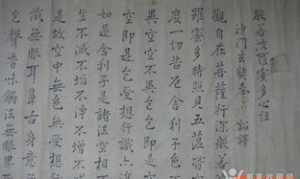 般若波羅蜜多心經
沙門玄奘奉 詔譯
觀自在菩薩行深般若
羅蜜多時照見五蘊皆空
度一切苦厄舍利子色不
異空空不異色色即是
空即是色受想行識亦
如是舍利子是諸法空相
生不滅不垢不淨不增
是故空中無色無受想
識無眼耳鼻舌身意
色聲香味觸法無眼界